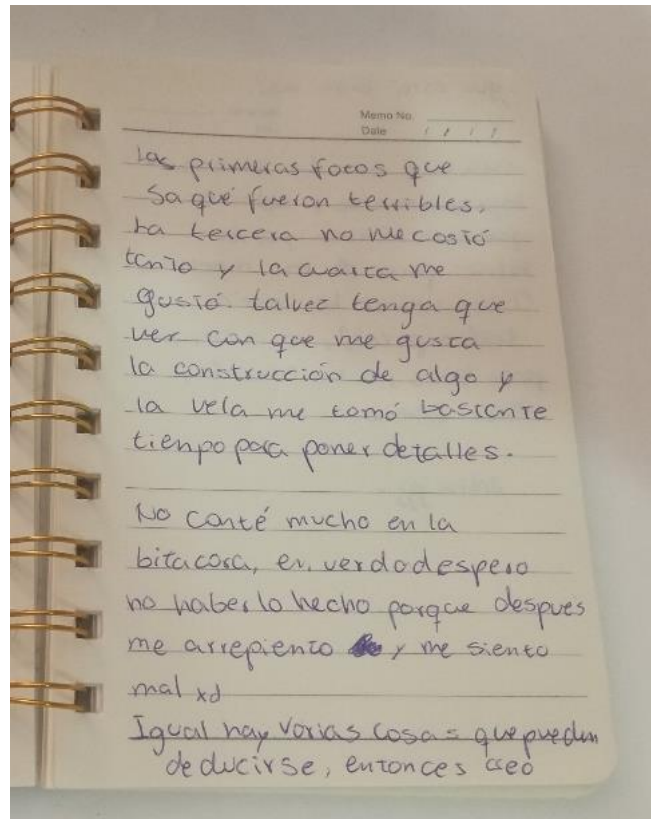 Memo No.
Date / / / /
Las primeras fotos que
saqué fueron terribles.
La tercera no me costó
tanto y la cuarta me
gustó. talvez tenga que
ver con que me gusta
la construcción de algo y
la vela me tomó bastante
tienpo para poner detalles.
No conté mucho en la
bitacora, en verdad espero
no haberlo hecho porque despues
me arrepiento y me siento
mal xd
Igual hay varias cosas que pueden
deducirse, entonces creo